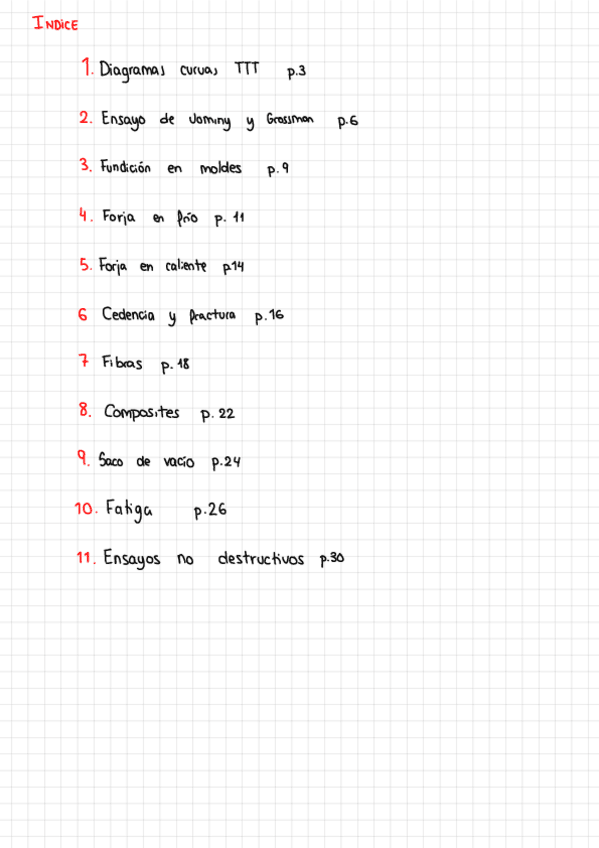 INDICE
1. Diagramas curvas TTT p.3
2. Ensayo de Jominy y Grossman p.6
3. Fundición en moldes p.9
4. Forja en frío p. 11
5. Forja en caliente p14
6 Cedencia y fractura p.16
7 Fibras p.18
8. Composites p.22
9. Saco de vacío p.24
10. Fatiga p.26
11. Ensayos no destructivos p.30